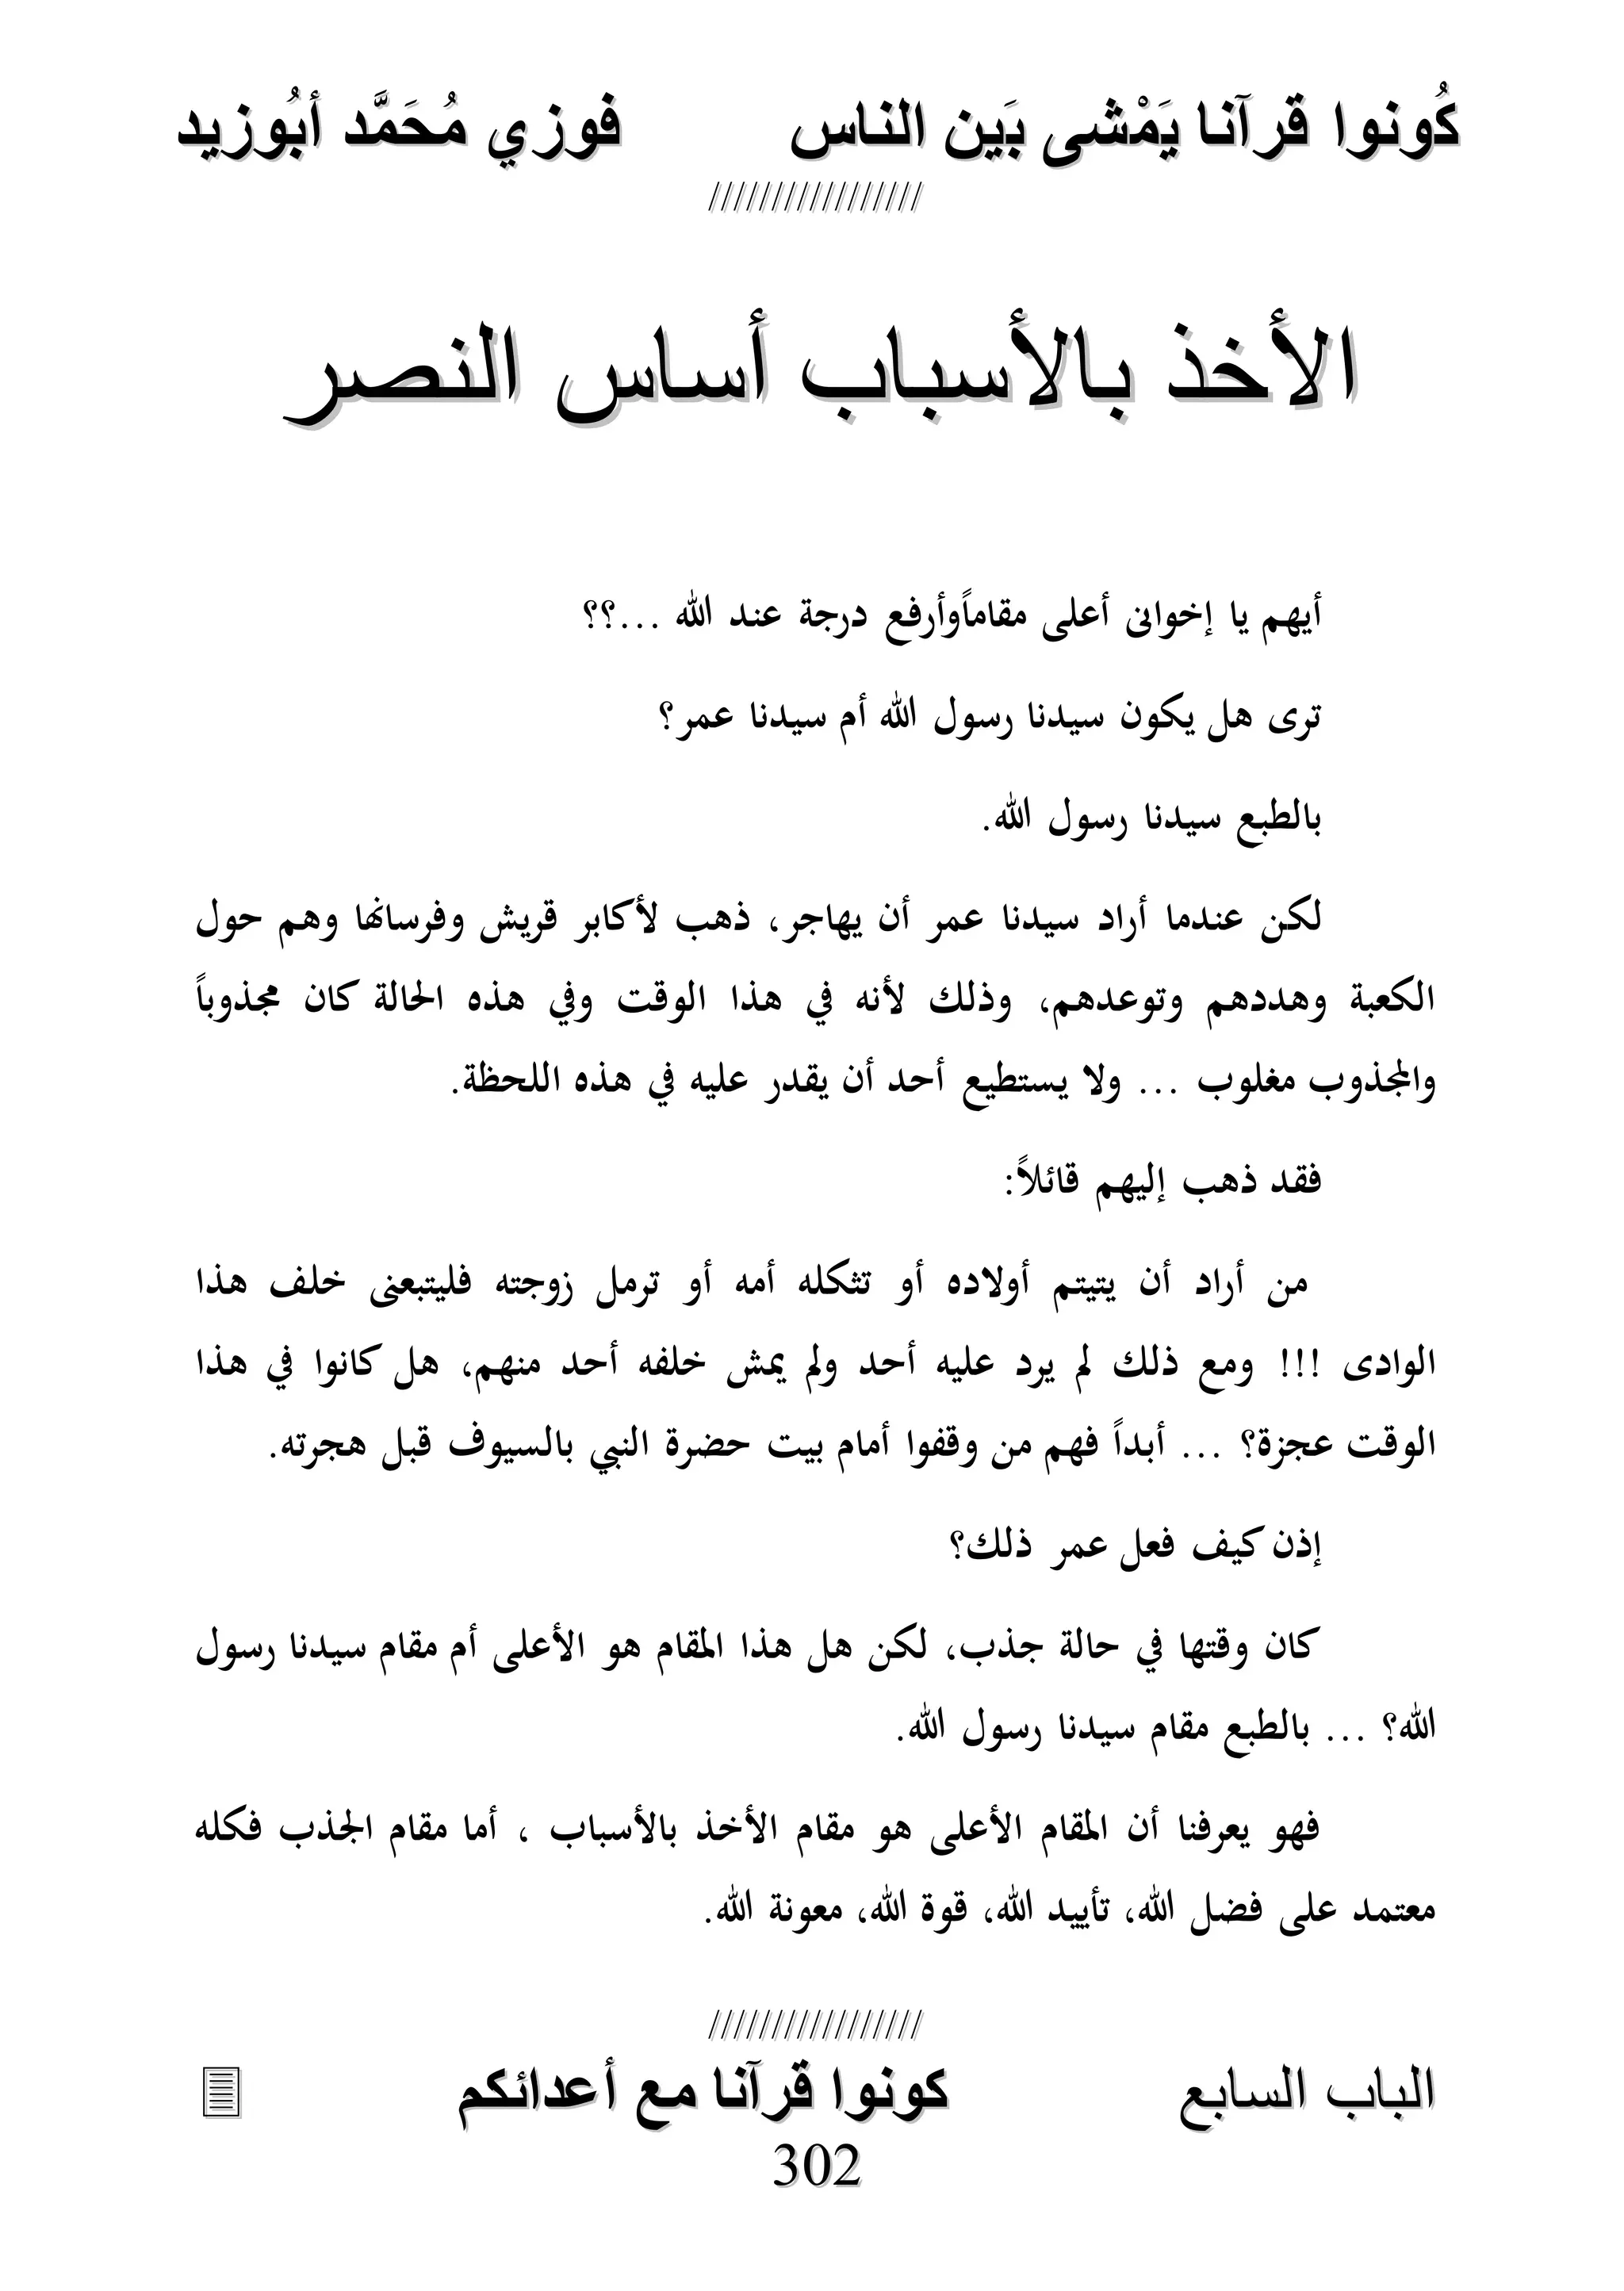 كُونوا قرآنا يَمْشى بَين الناس فوزي مُحَمَّد أبُوزيد
/////////////////
الأخذ بالأسباب أساس النصر
أيهم يا إخوانى أعلى مقاماًوأرفع درجة عند الله ...؟؟
ترى هل يكون سيدنا رسول الله أم سيدنا عمر؟
بالطبع سيدنا رسول الله.
لكن عندما أراد سيدنا عمر أن يهاجر، ذهب لأكابر قريش وفرسانها وهم حول
الكعبة وهددهم وتوعدهم، وذلك لأنه في هذا الوقت وفي هذه الحالة كان مجذوباً
والمجذوب مغلوب ... ولا يستطيع أحد أن يقدر عليه في هذه اللحظة.
فقد ذهب إليهم قائلاً:
من أراد أن يتيتم أولاده أو تثكله أمه أو ترمل زوجته فليتبعنى خلف هذا
الوادى !!! ومع ذلك لم يرد عليه أحد ولم يمش خلفه أحد منهم، هل كانوا في هذا
الوقت عجزة؟ ... أبداً فهم من وقفوا أمام بيت حضرة النبي بالسيوف قبل هجرته.
إذن كيف فعل عمر ذلك؟
كان وقتها في حالة جذب، لكن هل هذا المقام هو الأعلى أم مقام سيدنا رسول
الله؟ ... بالطبع مقام سيدنا رسول الله.
فهو يعرفنا أن المقام الأعلى هو مقام الأخذ بالأسباب ، أما مقام الجذب فكله
معتمد على فضل الله، تأييد الله، قوة الله، معونة الله.
/////////////////
الباب السابع كونوا قرآنا مع أعدائكم
302